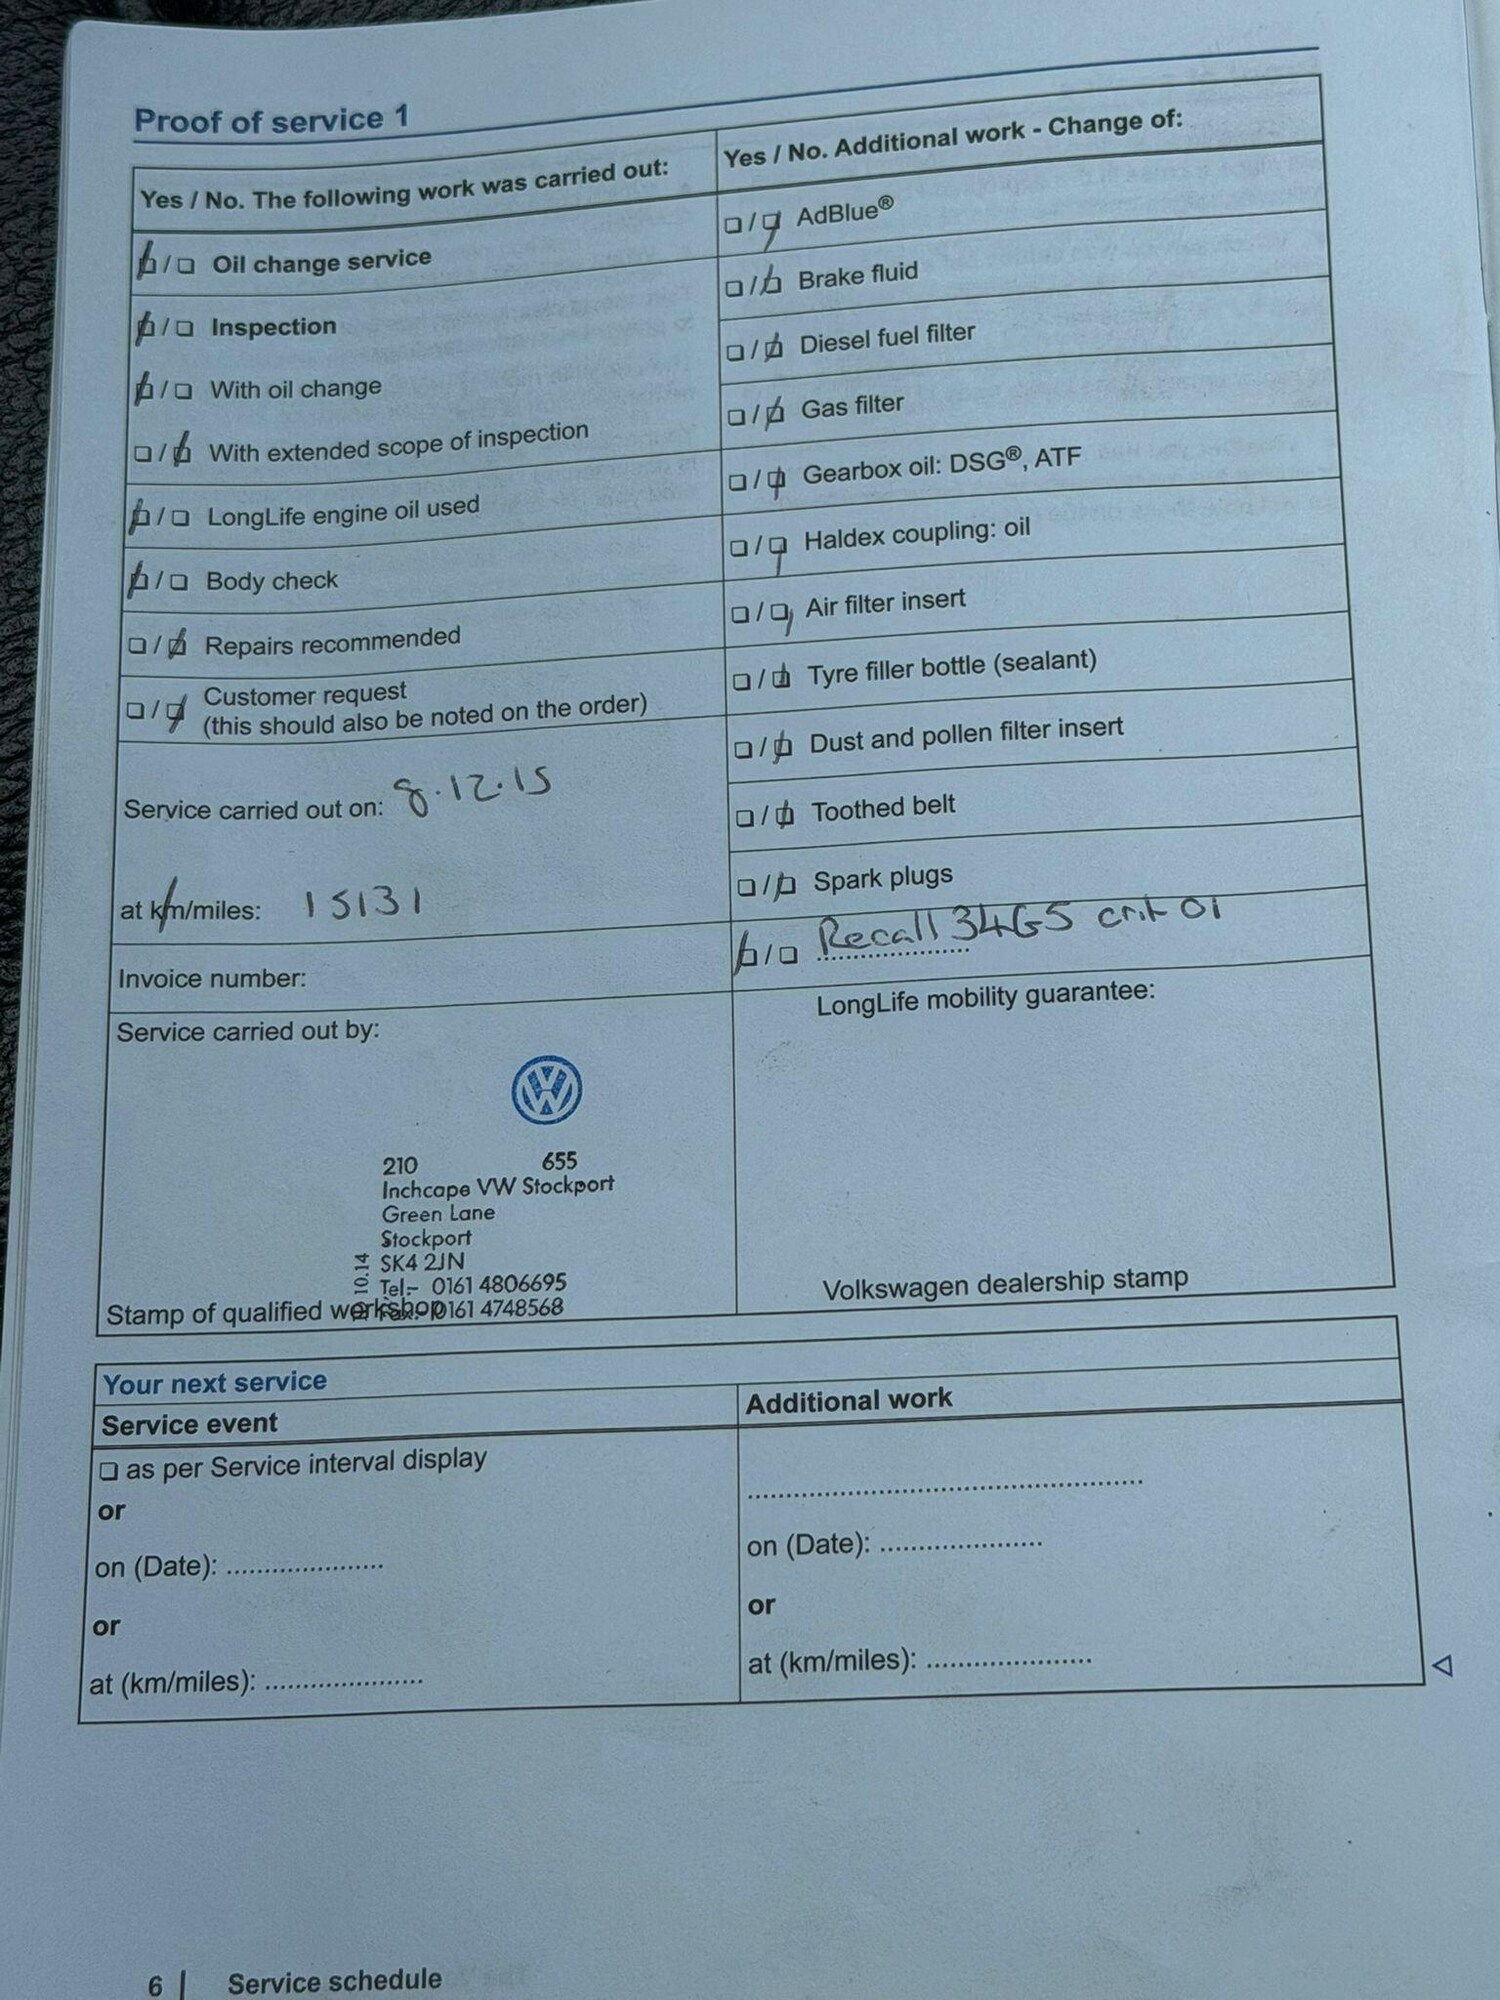 Proof of service 1
Yes / No. The following work was carried out:
☐ / ☐ Oil change service
☐ / ☐ Inspection
☐ / ☐ With oil change
☐ / ☐ With extended scope of inspection
☐ / ☐ LongLife engine oil used
☐ / ☐ Body check
☐ / ☐ Repairs recommended
☐ / ☐ Customer request
(this should also be noted on the order)
Service carried out on: 8.12.15
at km/miles: 15131
Invoice number:
Service carried out by:
VW
210 655
Inchcape VW Stockport
Green Lane
Stockport
SK4 2JN
Tel:- 0161 4806695
Fax:- 0161 4748568
10.14
Stamp of qualified workshop
Yes / No. Additional work - Change of:
☐ / ☐ AdBlue®
☐ / ☐ Brake fluid
☐ / ☐ Diesel fuel filter
☐ / ☐ Gas filter
☐ / ☐ Gearbox oil: DSG®, ATF
☐ / ☐ Haldex coupling: oil
☐ / ☐ Air filter insert
☐ / ☐ Tyre filler bottle (sealant)
☐ / ☐ Dust and pollen filter insert
☐ / ☐ Toothed belt
☐ / ☐ Spark plugs
☐ / ☐ Recall 34G5 crit 01
LongLife mobility guarantee:
Volkswagen dealership stamp
Your next service
Service event
☐ as per Service interval display
or
on (Date): .....................
or
at (km/miles): .....................
Additional work
.....................................................
on (Date): ......................
or
at (km/miles): ......................
6 | Service schedule